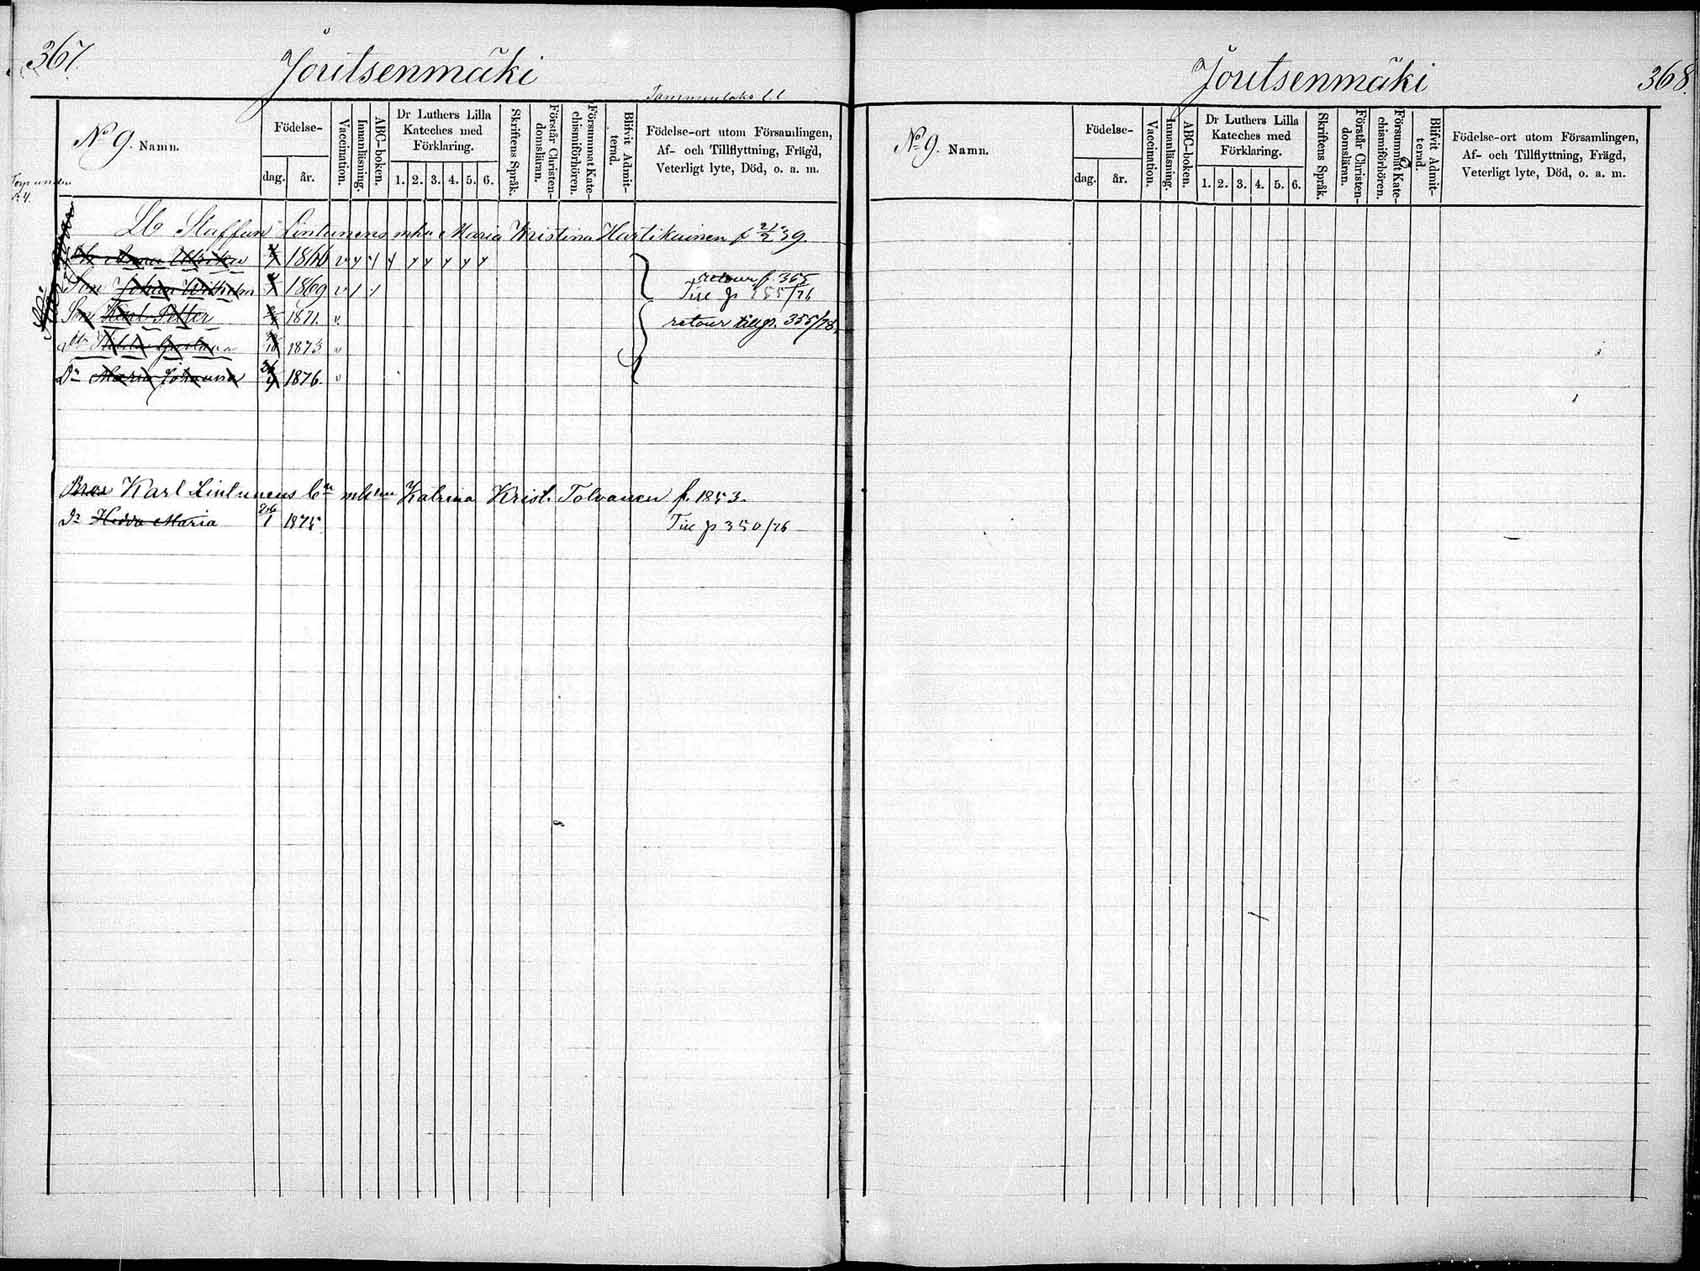 367.
Joutsenmäki
No 9. Namn.
Födelse-
dag. år.
Vaccination.
Innanläsning.
ABC-boken.
Dr Luthers Lilla
Kateches med
Förklaring.
1. 2. 3. 4. 5. 6.
Skriftens Språk.
Förstår Christen-
domsläran.
Försummat Kate-
chismiförhören.
Blifvit Admit-
terad.
Födelse-ort utom Församlingen,
Af- och Tillflyttning, Frägd,
Veterligt lyte, Död, o. a. m.
Lb Staffan Lintunens mhu Maria Kristina Hartikainen f 2/2 39.
Dr Anna Ulrika 1866
Son Johan Wilhelm 1869 retour p. 365
Till p 355/76
Son Karl Petter 1871. retour till p. 355/78.
1873
Dr Maria Johanna 1876.
Karl Lintunens mhu Katrina Krist. Tolvanen f. 1853.
Dr Hedda Maria 26/1 1875 Till p 350/76
Joutsenmäki
368.
No 9. Namn.
Födelse-
dag. år.
Vaccination.
Innanläsning.
ABC-boken.
Dr Luthers Lilla
Kateches med
Förklaring.
1. 2. 3. 4. 5. 6.
Skriftens Språk.
Förstår Christen-
domsläran.
Försummat Kate-
chismiförhören.
Blifvit Admit-
ternd.
Födelse-ort utom Församlingen,
Af- och Tillflyttning, Frägd,
Veterligt lyte, Död, o. a. m.